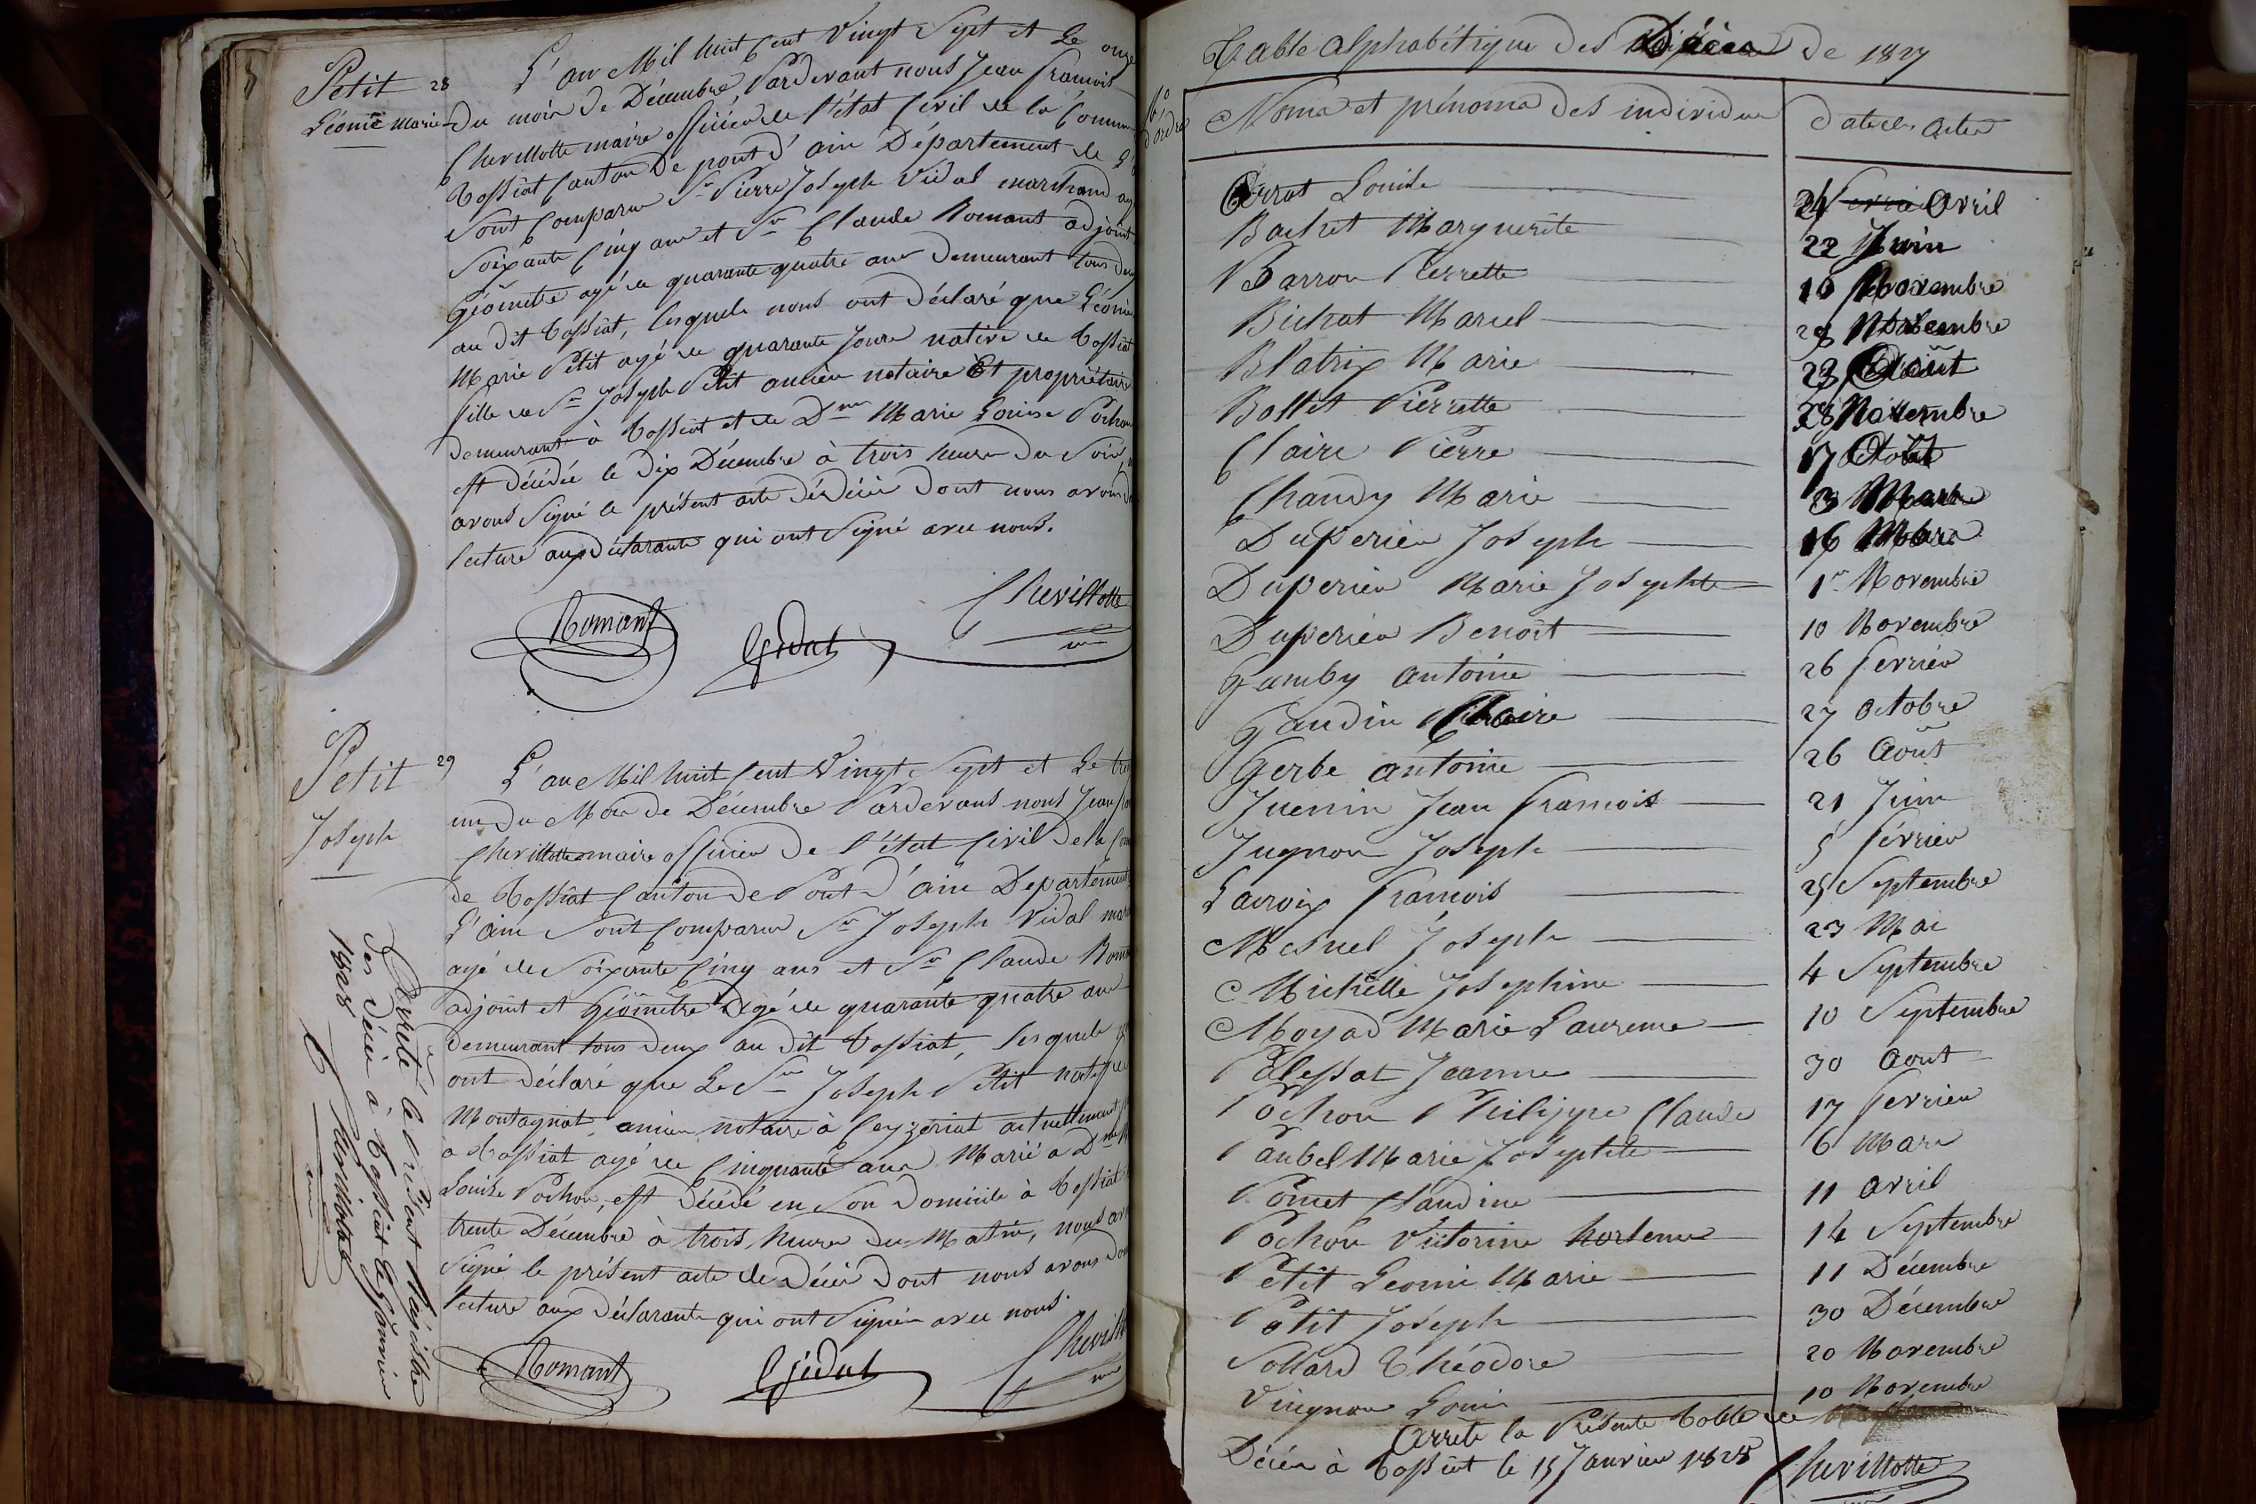 Petit 28
Léonie Marie
L'an Mil huit Cent Vingt Sept et Le onze
du mois de Décembre, Pardevant nous Jean François
Chevillotte maire officier de l'état Civil de la Commu
Tossiat Canton De pont d'ain Département de L'
Sont Comparus Sr Pierre Joseph Vidal marchand ag
Soixante Cinq ans et Sr Claude Romant adjoint
Géomètre agé de quarante quatre ans demeurant tous deu
au dit Tossiat, lesquels nous ont déclaré que Léonie
Marie Petit agé de quarante jours native de Tossiat
fille de Sr Joseph Petit ancien notaire Et propriétaire
demeurant à Tossiat et de Dme Marie Louise Pochon
est décédée le dix Décembre à trois heures du Soir,
avons Signé le présent acte de Décès dont nous avons d
lecture aux déclarants qui ont Signé avec nous.
Romant Vidal Chevillotte
Petit 29
Joseph
L'an Mil huit Cent Vingt Sept et Le tre
un du Mois de Décembre Pardevant nous Jean f
Chevillotte maire officier De l'état Civil De la Com
de Tossiat Canton de Pont D'ain Departement
L'ain Sont Comparus Sr Joseph Vidal mar
agé de Soixante Cinq ans et Sr Claude Rom
adjoint et Géomètre agé de quarante quatre ans
demeurant tous deux au dit Tossiat, lesquels
ont déclaré que Le Sr Joseph Petit natif de
Montagnat ancien notaire à Ceyzériat actuellement
à Tossiat agé de Cinquante ans Marié a Dme
Louise Pochon, est Décédé en Son Domicile à Tossiat
trente Décembre à trois heures du Matin, nous av
Signé le présent acte de Décès dont nous avons don
lecture aux déclarants qui ont Signés avec nous.
Romant Vidal Chevillott
Arrêté le Présent Régistre
des Décès à Tossiat le Janvier
1828
Chevillotte
Table alphabétique des Décès de 1827
No d'ordre
Noms et prénoms des individus
Date des Actes
Louise 24 Avril
Bachet Marguerite 22 Juin
Barron Pierrette 10 Novembre
Bichat Marcel 28 Novembre
Blatrix Marie 23 Août
Bollet Pierrette 28 Novembre
Claire Pierre 17
Chaudy Marie 3
Duperieu Joseph 16 Mars
Duperieu Marie Josephte 1er Novembre
Duperieu Benoit 10 Novembre
Gamby antoine 26 fevrier
Gaudin Claire 27 Octobre
Gerbe antoine 26 Août
Juenin Jean François 21 Juin
Jugnon Joseph 5 février
Lacroix François 25 Septembre
Mesnel Joseph 23 Mai
Michelle Josephine 4 Septembre
Moyad Marie Laurence 10 Septembre
Palessat Jeanne 30 Aout
Pochon Philippe Claude 17 fevrier
Paubel Marie Josephte 6 Mars
Pomet Claudine 11 avril
Pochon Victorine hortense 14 Septembre
Petit Leonie Marie 11 Décembre
Petit Joseph 30 Décembre
Sollard Théodore 20 Novembre
Vingnon Louis 10 Novembre
Arrêté la Présente Table de
Décès à Tossiat le 15 Janvier 1828 Chevillotte